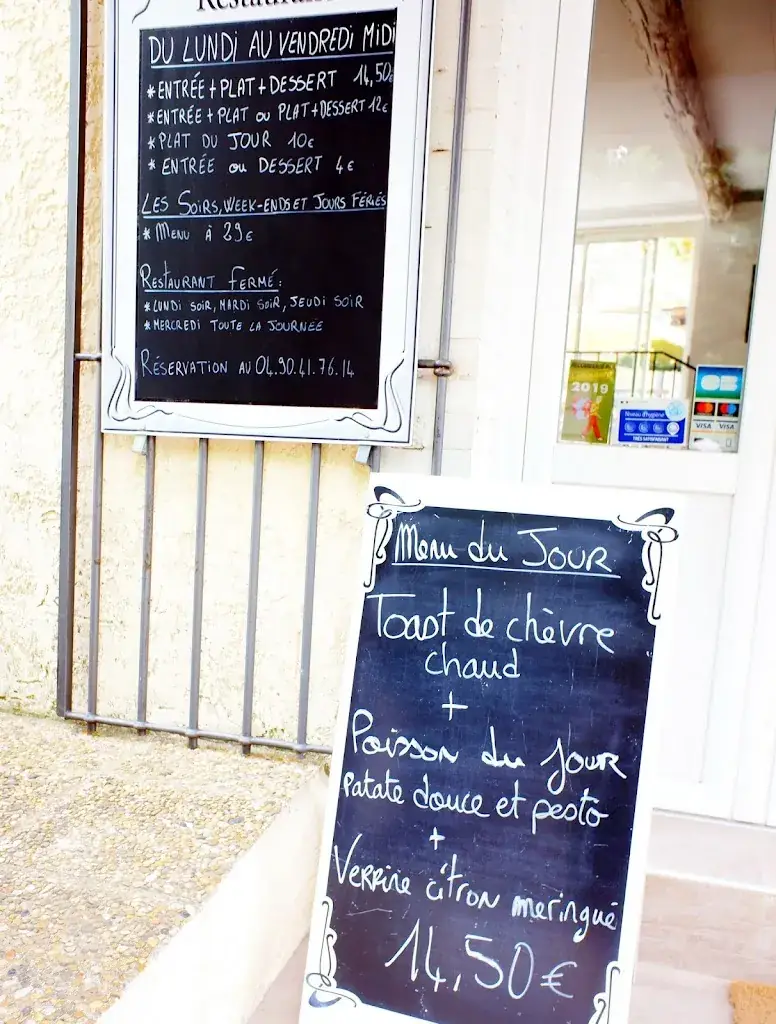 Restaurant
DU LUNDI AU VENDREDI MIDI
* ENTRÉE + PLAT + DESSERT 14,50€
* ENTRÉE + PLAT OU PLAT + DESSERT 12€
* PLAT DU JOUR 10€
* ENTRÉE OU DESSERT 4€
LES SOIRS, WEEK-ENDS ET JOURS FÉRIÉS
* MENU À 29€
RESTAURANT FERMÉ:
* LUNDI SOIR, MARDI SOIR, JEUDI SOIR
* MERCREDI TOUTE LA JOURNÉE
RÉSERVATION AU 04.90.41.76.14
2019
Niveau d'hygiène
TRÈS SATISFAISANT
CB
VISA VISA
Menu du JOUR
Toast de chèvre
chaud
+
Poisson du jour
Patate douce et pesto
+
Verrine citron meringué
14,50€